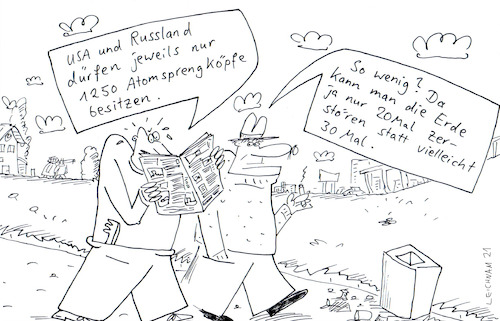 USA und Russland
dürfen jeweils nur
1250 Atomsprengköpfe
besitzen.
So wenig? Da
kann man die Erde
ja nur 20Mal zer-
stören statt vielleicht
30 Mal.
LEICHNAM 21